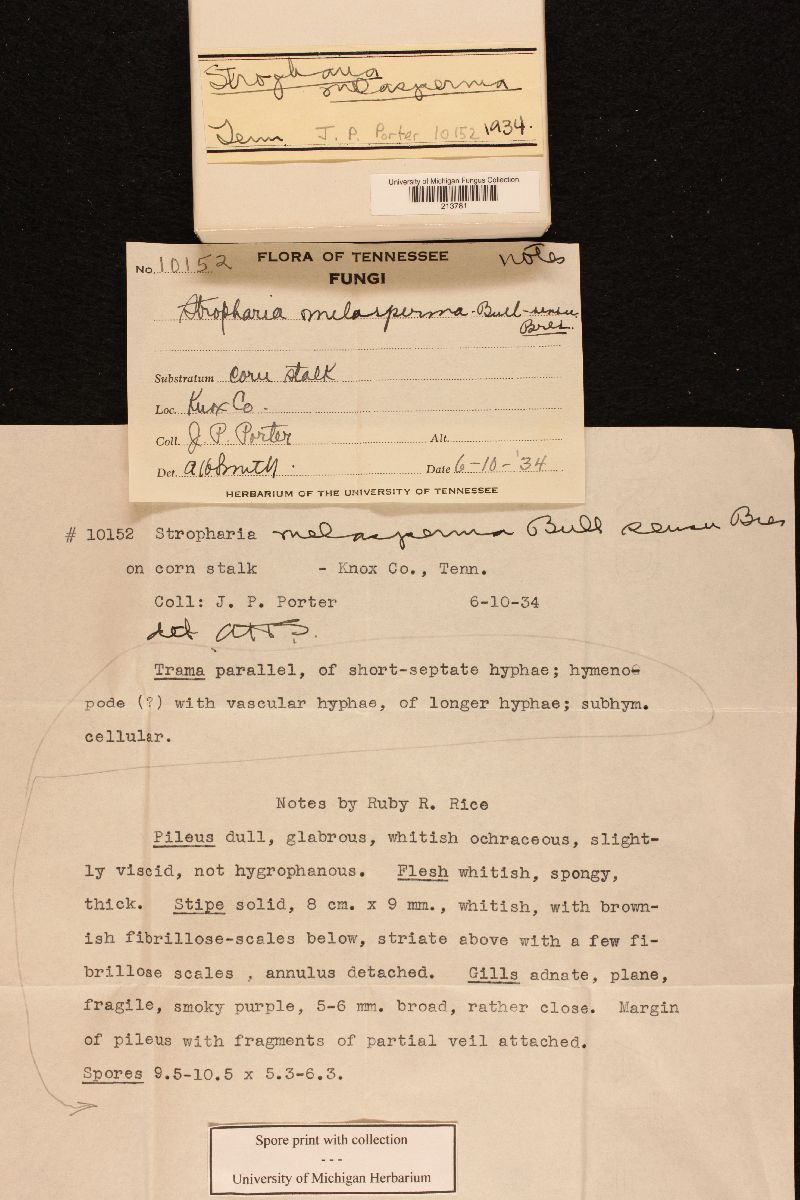 Stropharia
melasperma
Tenn J. P. Porter 10152 1934.
University of Michigan Fungus Collection
213781
No. 10152 FLORA OF TENNESSEE notes
FUNGI
Stropharia melasperma - Bull - sensu
Bres.
Substratum corn stalk
Loc. Knox Co.
Coll. J. P. Porter Alt.
Det. AHSmith. Date 6-10-'34
HERBARIUM OF THE UNIVERSITY OF TENNESSEE
# 10152 Stropharia melasperma Bull sensu Bres
on corn stalk - Knox Co., Tenn.
Coll: J. P. Porter 6-10-34
det AHS.
Trama parallel, of short-septate hyphae; hymeno-
pode (?) with vascular hyphae, of longer hyphae; subhym.
cellular.
Notes by Ruby R. Rice
Pileus dull, glabrous, whitish ochraceous, slight-
ly viscid, not hygrophanous. Flesh whitish, spongy,
thick. Stipe solid, 8 cm. x 9 mm., whitish, with brown-
ish fibrillose-scales below, striate above with a few fi-
brillose scales , annulus detached. Gills adnate, plane,
fragile, smoky purple, 5-6 mm. broad, rather close. Margin
of pileus with fragments of partial veil attached.
Spores 9.5-10.5 x 5.3-6.3.
Spore print with collection
- - -
University of Michigan Herbarium